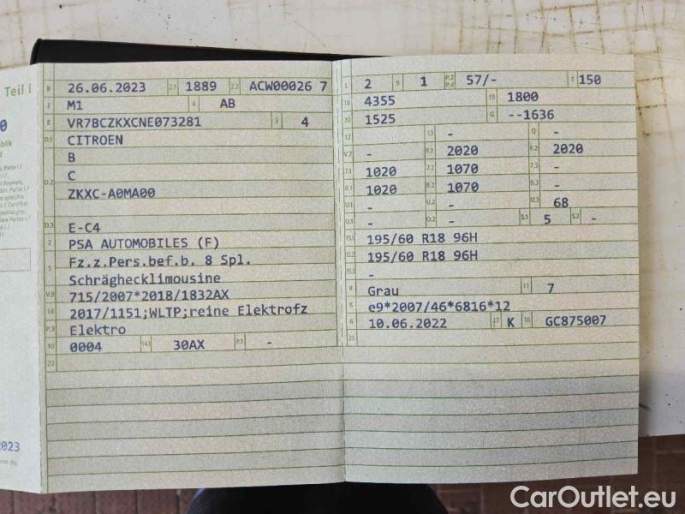 Teil I
26.06.2023 1889 ACW00026 7
M1 AB
VR7BCZKXCNE073281 4
CITROEN
B
C
ZKXC-A0MA00
E-C4
PSA AUTOMOBILES (F)
Fz.z.Pers.bef.b. 8 Spl.
Schräghecklimousine
715/2007*2018/1832AX
2017/1151;WLTP;reine Elektrofz
Elektro
0004 30AX -
2 1 57/- 150
4355 1800
1525 --1636
- -
- 2020 2020
1020 1070 -
1020 1070 -
- - 68
- - 5 -
195/60 R18 96H
195/60 R18 96H
-
Grau 7
e9*2007/46*6816*12
10.06.2022 K GC875007
2023
CarOutlet.eu